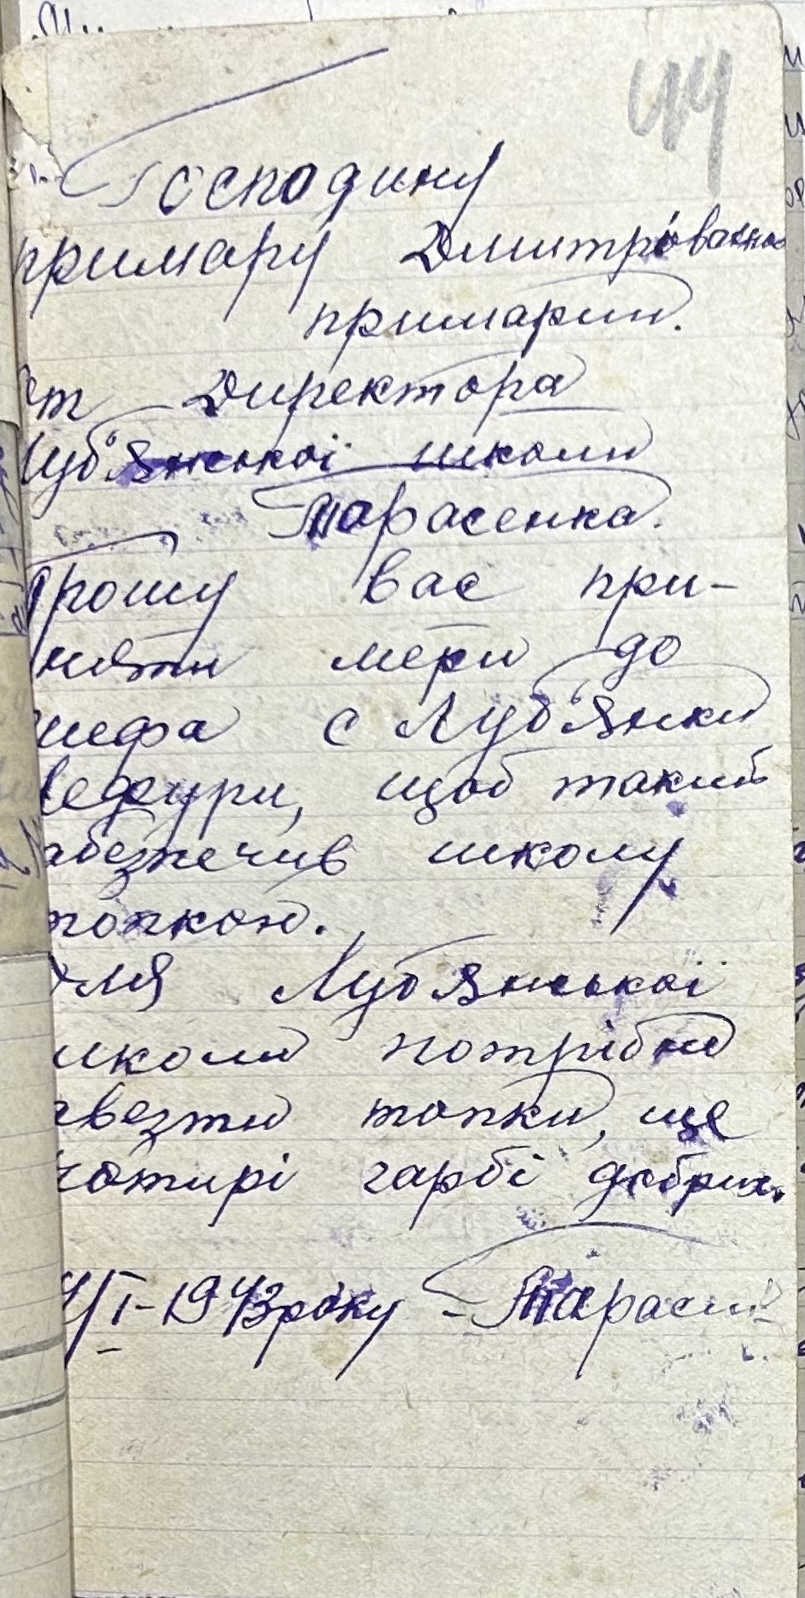 44
Господину
примару Дмитрованно
примарии.
от Директора
Луб'янської школи
Тарасенка.
Прошу вас при-
няти мери до
шефа с Луб'янки
щоб такий
забезпечив школу
топкою.
для Луб'янської
школи потрібно
завезти топки, ще
чотирі гарбі добрих.
/I-1943 року - Тарасен